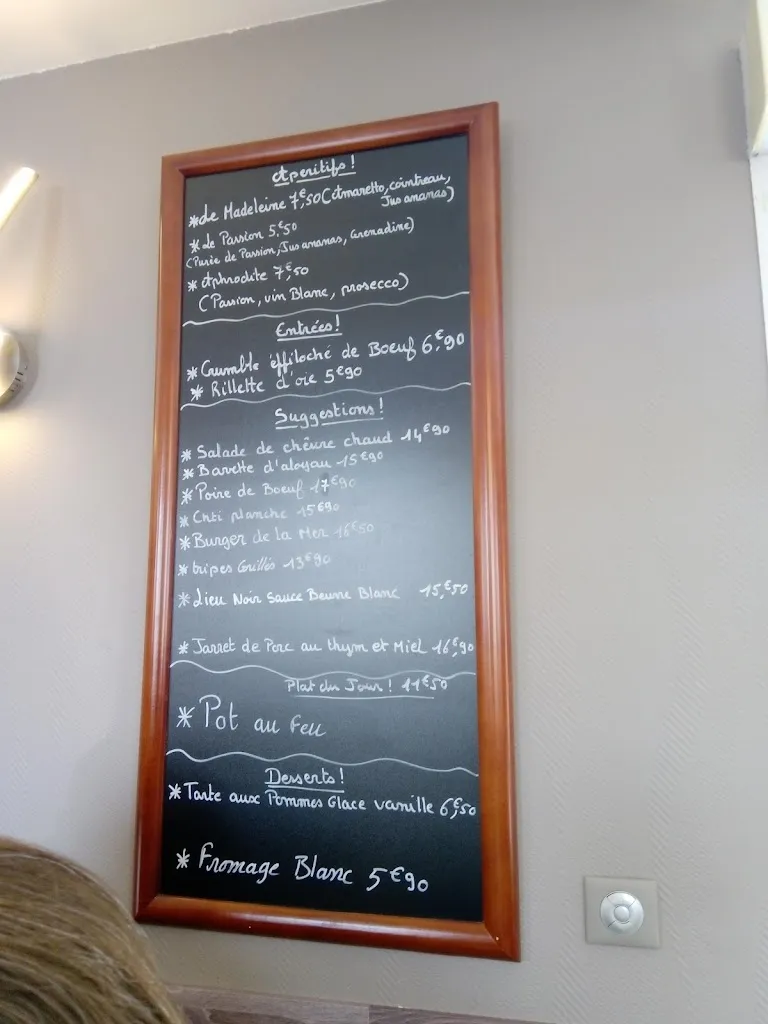 Aperitifs !
*Le Madeleine 7,€50 (Amaretto, cointreau,
Jus ananas)
*Le Passion 5.€50
(Purée de Passion, Jus ananas, Grenadine)
* Aphrodite 7,€50
(Passion, vin Blanc, prosecco)
Entrées !
*Crumble éffiloché de Boeuf 6,€90
* Rillette d'oie 5€90
Suggestions !
* Salade de chêvre chaud 14€90
* Bavette d'aloyau 15€90
* Poire de Boeuf 17€90
* Chti planche 15€90
* Burger de la Mer 16€50
* tripes Grillés 13€90
* Lieu Noir Sauce Beurre Blanc 15,€50
* Jarret de Porc au thym et Miel 16,€90
Plat du Jour ! 11€50
* Pot au feu
Desserts !
* Tarte aux Pommes Glace vanille 6,€50
* Fromage Blanc 5€90